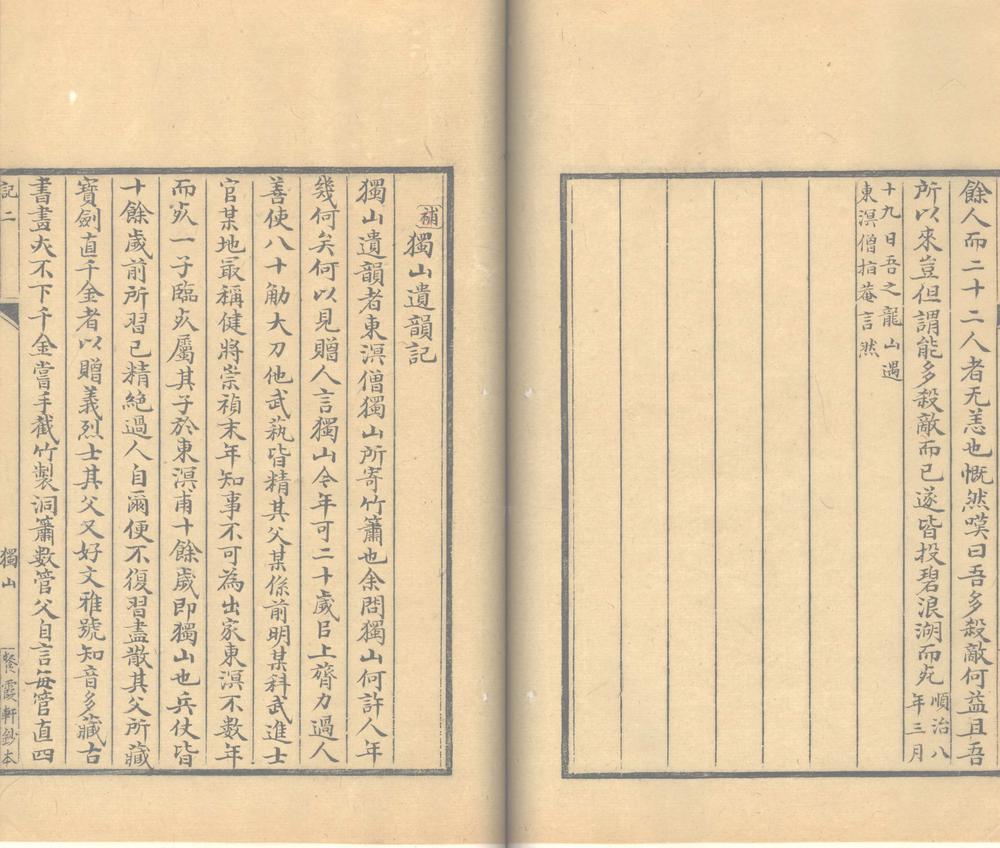 餘人而二十二人者无恙也慨然嘆曰吾多殺敵何益且吾
所以來豈但謂能多殺敵而已遂皆投碧浪湖而死順治八
年三月
十九日吾之龍山遇
東溟僧指菴言然
補獨山遺韻記
獨山遺韻者東溟僧獨山所寄竹簫也余問獨山何許人年
幾何矣何以見贈人言獨山今年可二十歲㠯上膂力過人
善使八十觔大刀他武埶皆精其父某係前明某科武進士
官某地最稱健將崇禎末年知事不可為出家東溟不數年
而死一子臨死屬其子於東溟甫十餘歲即獨山也兵仗皆
十餘歲前所習已精絶過人自爾便不復習盡散其父所藏
寶劍直千金者以贈義烈士其父又好文雅號知音多藏古
書畫大不下千金嘗手截竹製洞簫數管父自言每管直四
記二
獨山
餐霞軒鈔本